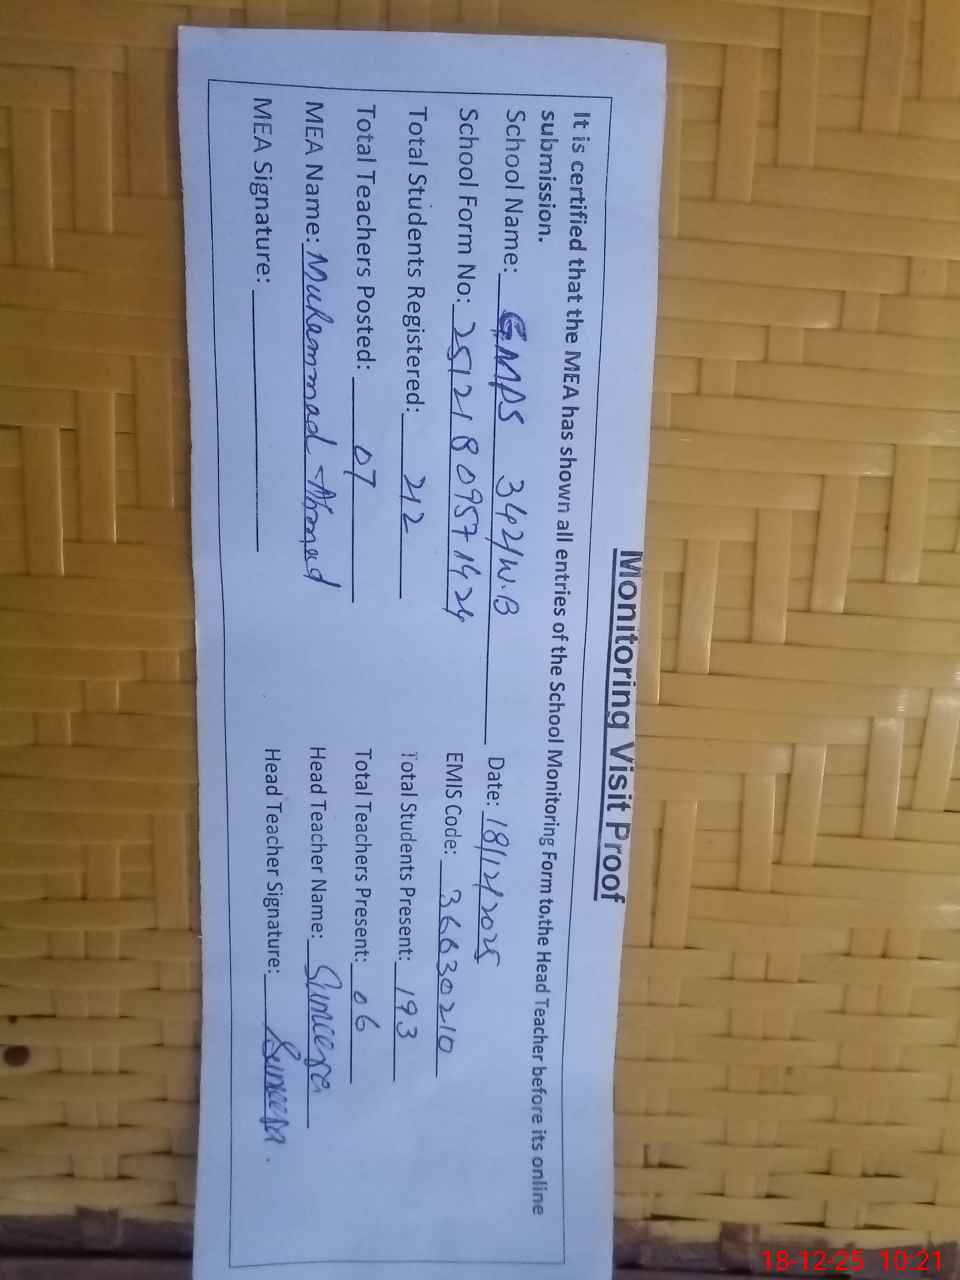 Monitoring Visit Proof
It is certified that the MEA has shown all entries of the School Monitoring Form to the Head Teacher before its online
submission.
School Name: GMPS 342/W.B Date: 18/12/2025
School Form No: 25121809571424 EMIS Code: 36630210
Total Students Registered: 212 Total Students Present: 193
Total Teachers Posted: 07 Total Teachers Present: 06
MEA Name: Muhammad Ahmad Head Teacher Name: Sumeera
MEA Signature: Head Teacher Signature: Sumeera.
18-12-25 10:21